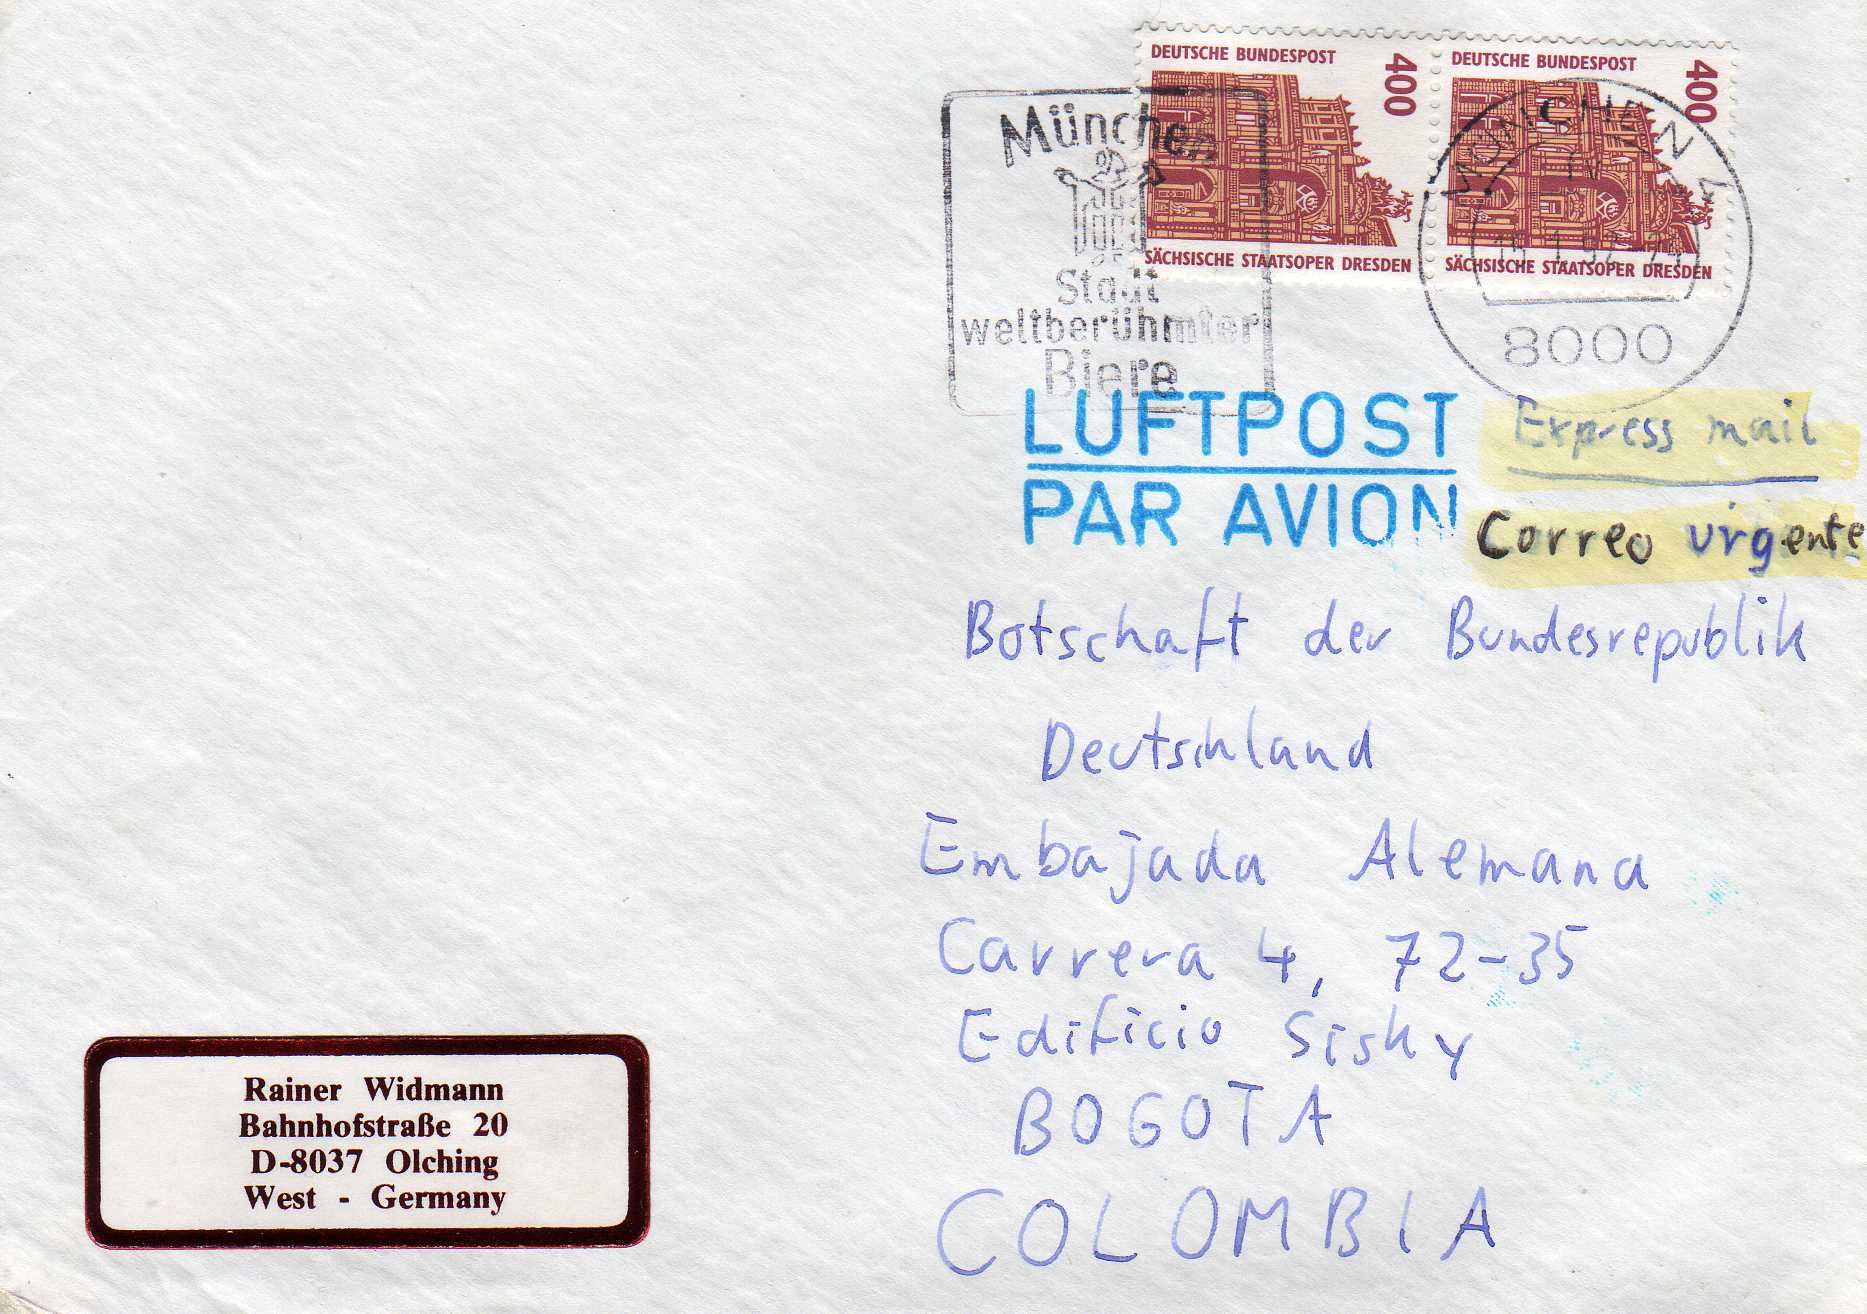 DEUTSCHE BUNDESPOST
400
SÄCHSISCHE STAATSOPER DRESDEN
DEUTSCHE BUNDESPOST
400
SÄCHSISCHE STAATSOPER DRESDEN
München
Stadt
weltberühmter
Biere
MÜNCHEN 4
8000
LUFTPOST
PAR AVION
Express mail
Correo urgente
Botschaft der Bundesrepublik
Deutschland
Embajada Alemana
Carrera 4, 72-35
Edificio Sisky
BOGOTA
COLOMBIA
Rainer Widmann
Bahnhofstraße 20
D-8037 Olching
West - Germany